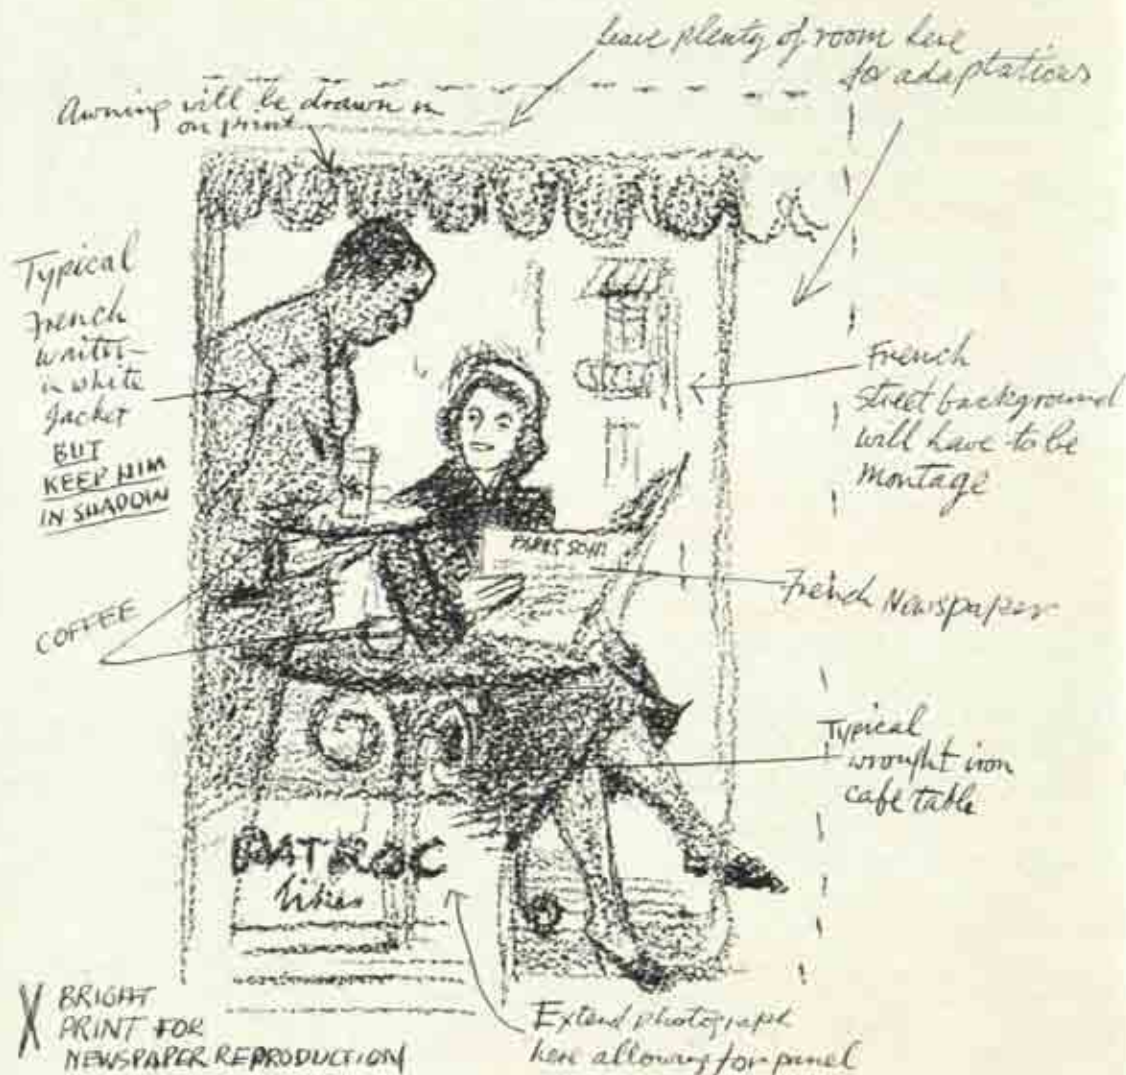 leave plenty of room here
for adaptations
Awning will be drawn in
on print
Typical
French
waiter-
in white
jacket
BUT
KEEP HIM
IN SHADOW
French
street background
will have to be
montage
PARIS SOIR
French Newspaper
COFFEE
Typical
wrought iron
cafe table
PATROC
X BRIGHT
PRINT FOR
NEWSPAPER REPRODUCTION
Extend photograph
here allowing for panel